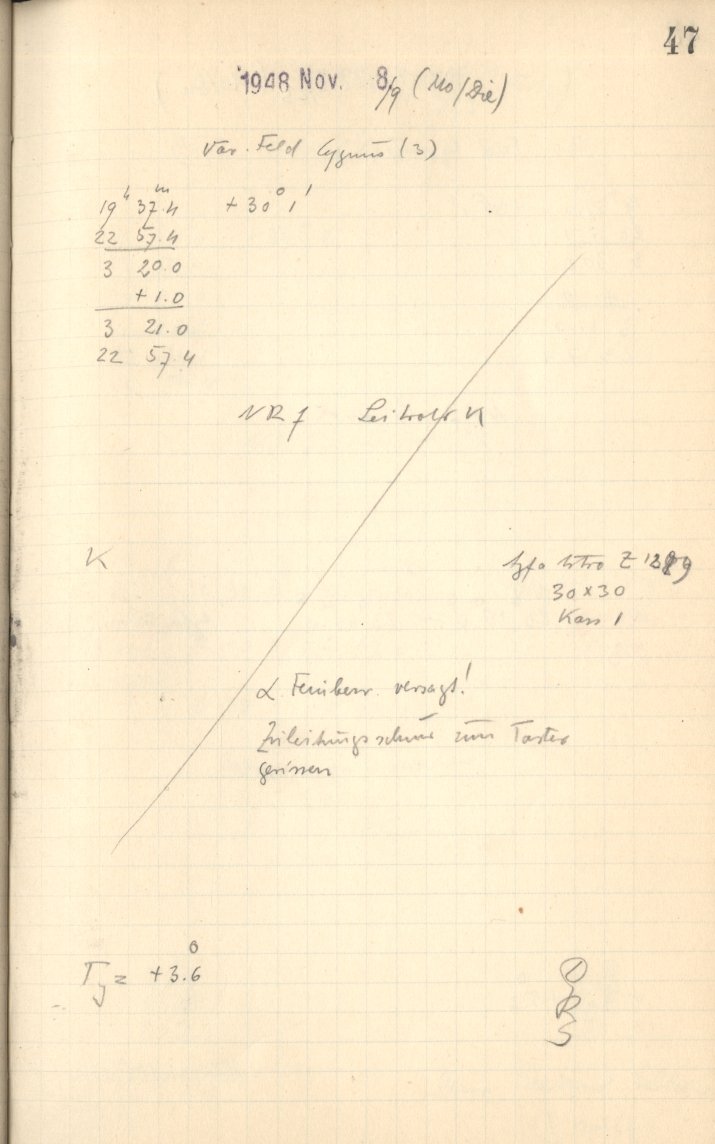 47
1948 Nov. 8/9 (Mo/Die)
Var. Feld Cygnus (3)
19h 37m.4 +30° 1'
22 57.4
3 20.0
+1.0
3 21.0
22 57.4
Leitrohr K
K
Agfa Astro Z
30x30
Kass 1
α Feinbew. versagt!
Zuleitungsschnur zum Taster
gerissen
Ty = +3.6°